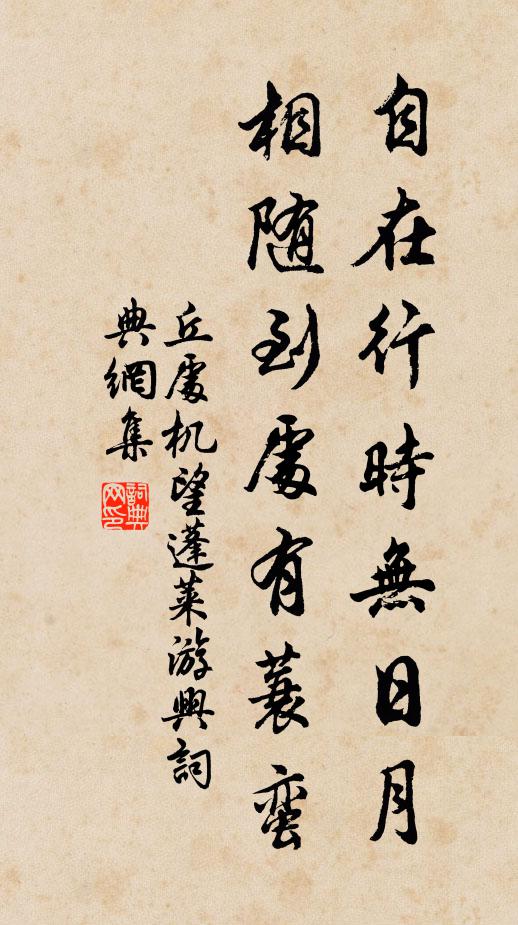 自在行時無日月
相随到處有蓑蛮
丘處机望蓬莱游興詞
典網集
詞典网印